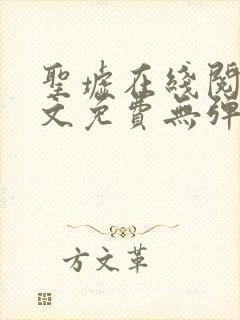 聖墟在綫閱
文免費無彈
方文革